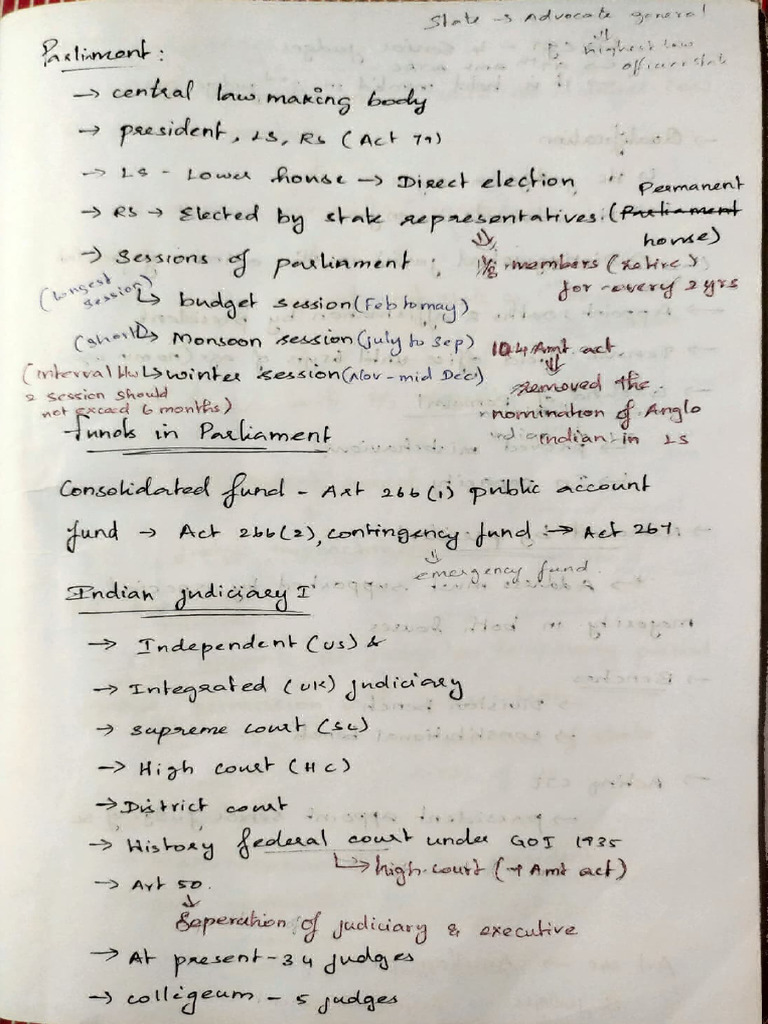 State → Advocate general
⇓
highest law
officer state
Parliament :
→ central law making body
→ president, LS, RS (Act 79)
→ LS - Lower house → Direct election
→ RS → Elected by state representatives. (Parliament Permanent
house)
⇓
1/3 members (retire)
for every 2 yrs
→ Sessions of parliament :
(longest session) ↳ budget session (Feb to may)
(short) ↳ Monsoon session (july to sep)
(interval b/w ↳ winter session (Nov - mid Dec)
2 session should
not exceed 6 months)
104 Amt act
⇓
removed the
nomination of Anglo
indian in LS
funds in Parliament
Consolidated fund - Art 266(1) public account
fund → Act 266(2), contingency fund :→ Act 267.
⇓
emergency fund
Indian judiciary I
→ Independent (US) &
→ Integrated (UK) judiciary
→ supreme court (SC)
→ High court (HC)
→ District court
→ History federal court under GOI 1935
↳ high court (→ Amt act)
→ Art 50.
↓
Seperation of judiciary & executive
→ At present - 34 judges
→ colligeum - 5 judges